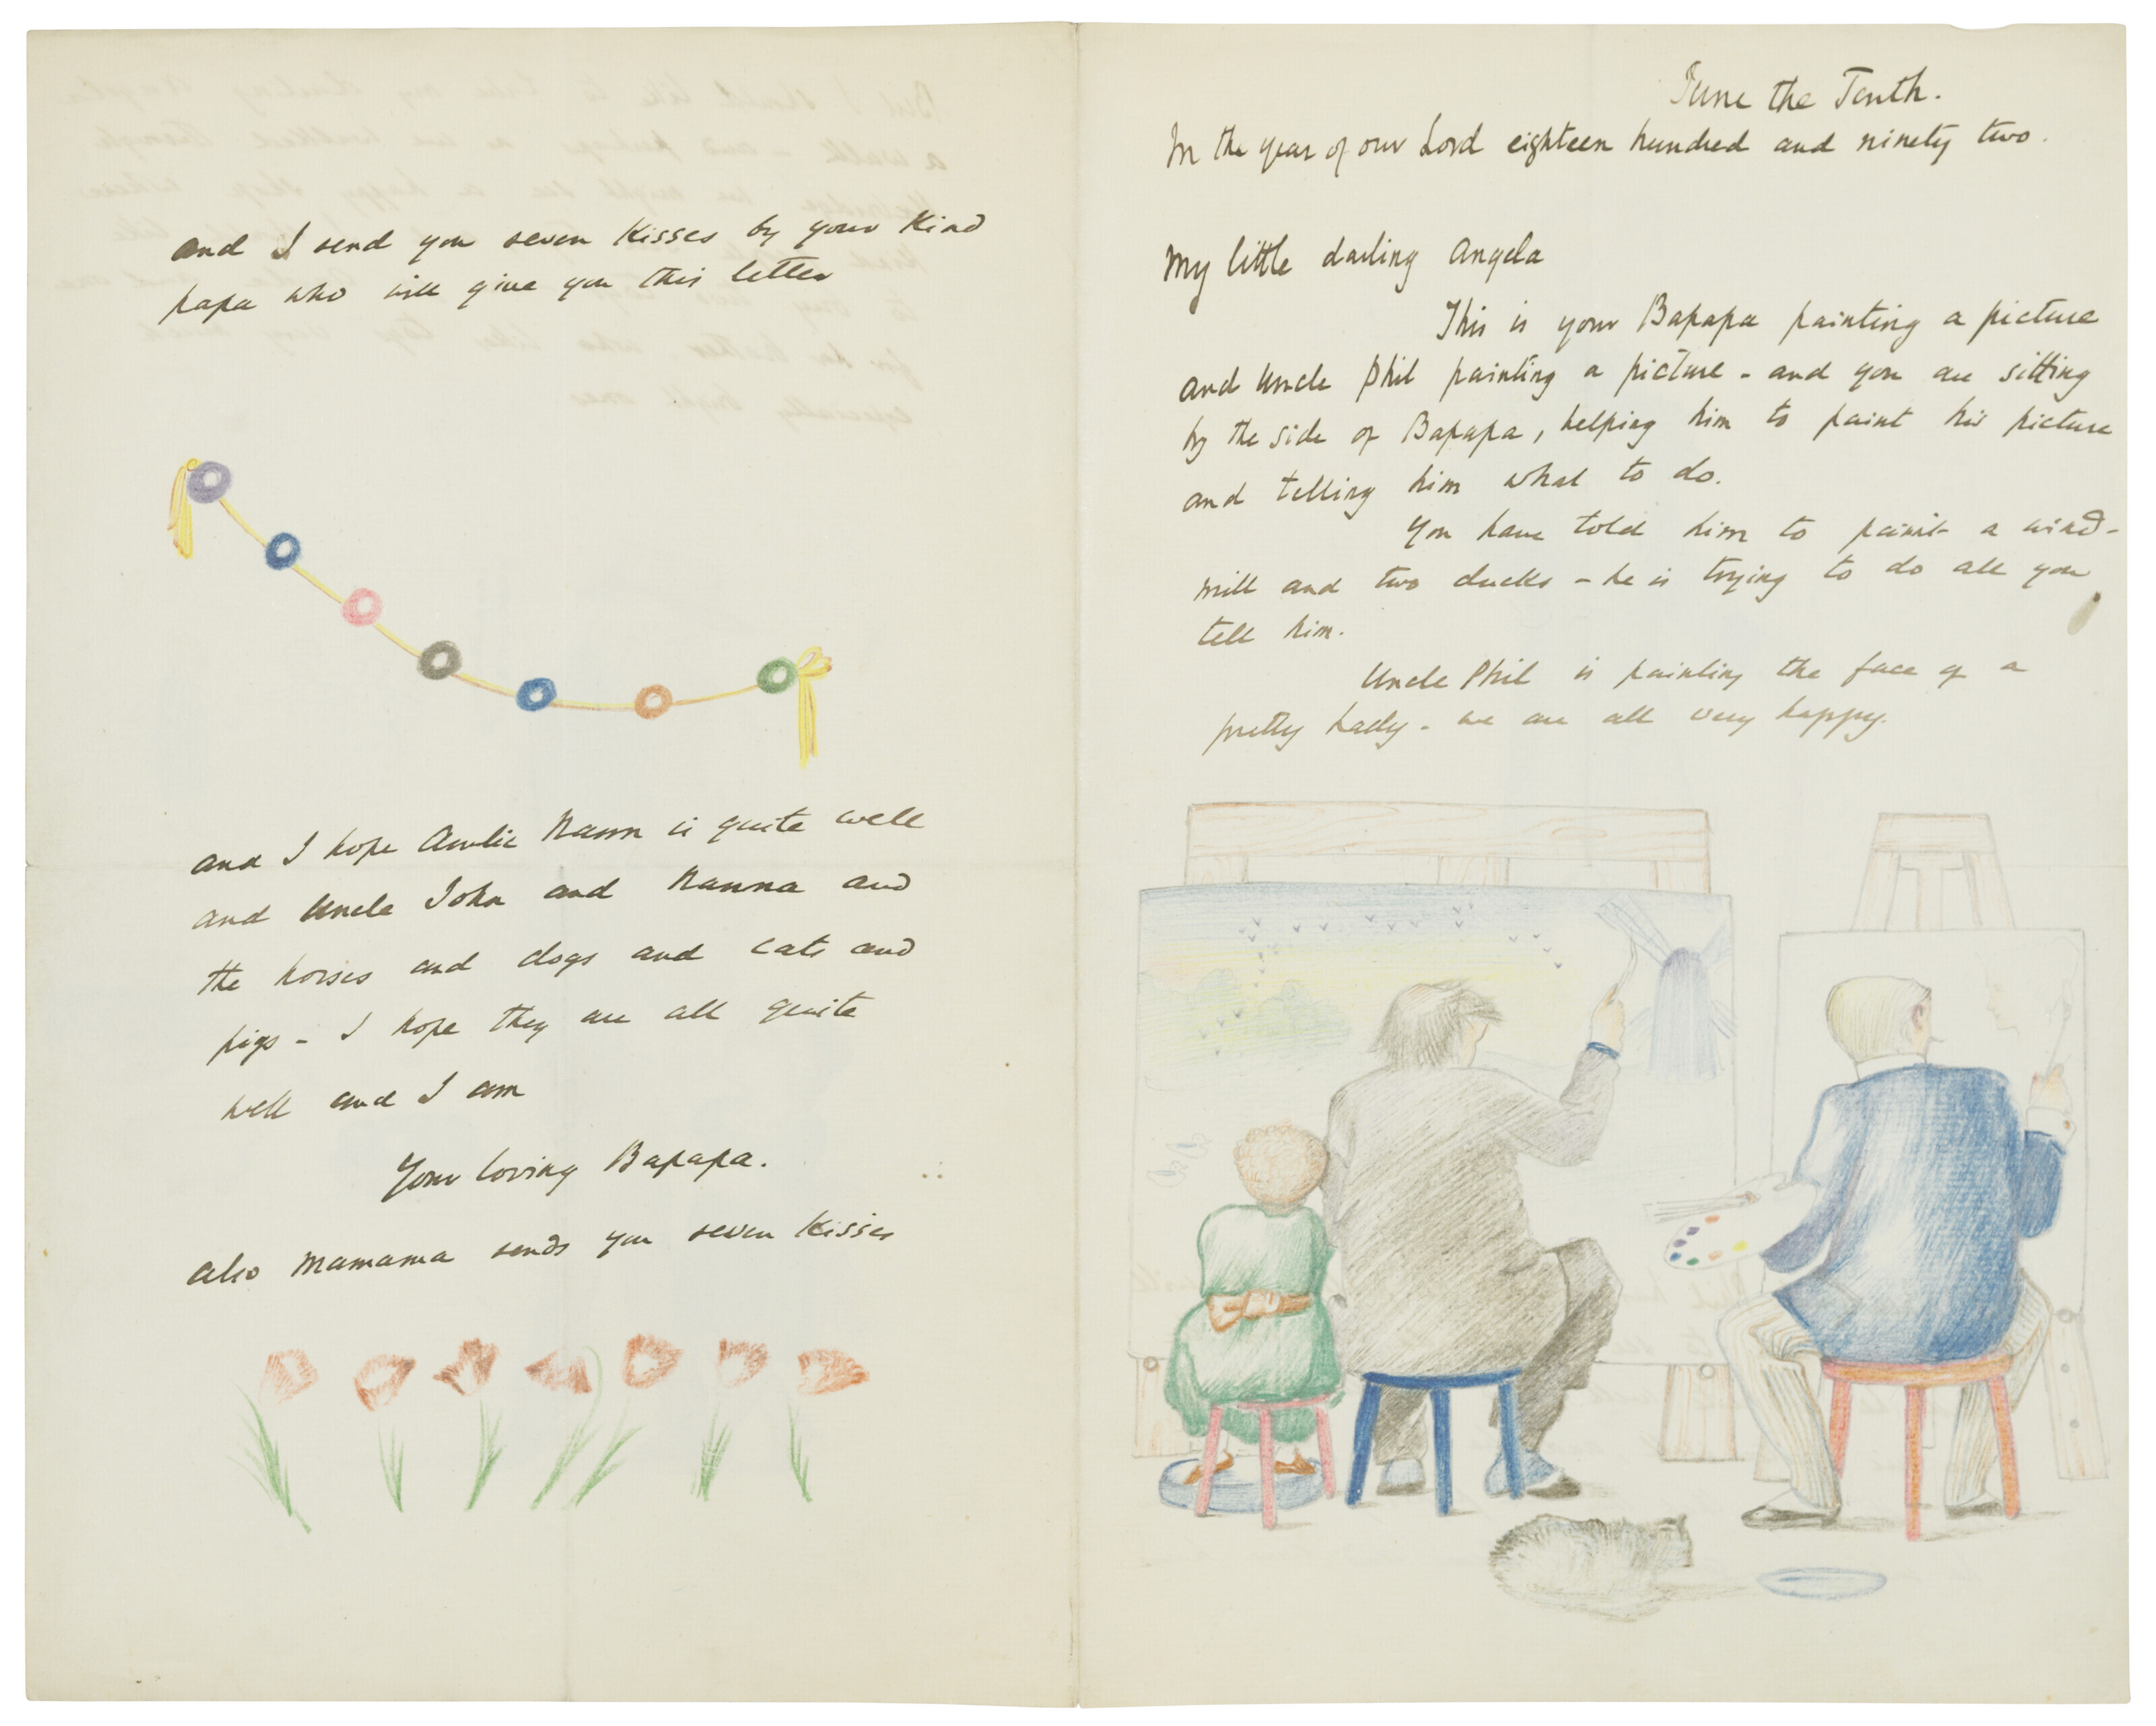 June the Tenth.
In the year of our Lord eighteen hundred and ninety two.
My little darling Angela
This is your Bapapa painting a picture
and Uncle Phil painting a picture - and you are sitting
by the side of Bapapa, helping him to paint his picture
and telling him what to do.
You have told him to paint a wind-
mill and two ducks - he is trying to do all you
tell him.
Uncle Phil is painting the face of a
pretty lady - we are all very happy.
and I send you seven kisses by your kind
papa who will give you this letter
and I hope Auntie Nann is quite well
and Uncle John and Nanna and
the horses and dogs and cats and
pigs - I hope they are all quite
well and I am
Your loving Bapapa.
also Mamama sends you seven kisses